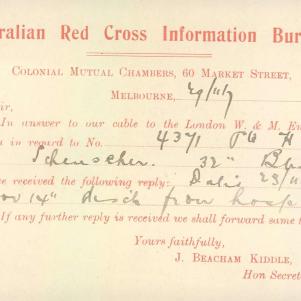 ralian Red Cross Information Bur
COLONIAL MUTUAL CHAMBERS, 60 MARKET STREET,
MELBOURNE, 29/11/17
ir,
In answer to our cable to the London W. & M. En
n in regard to No. 4371 Pte H
32nd B
we received the following reply: Date 23/11
ov 14th disch from hosp
If any further reply is received we shall forward same t
Yours faithfully,
J. BEACHAM KIDDLE,
Hon Secre